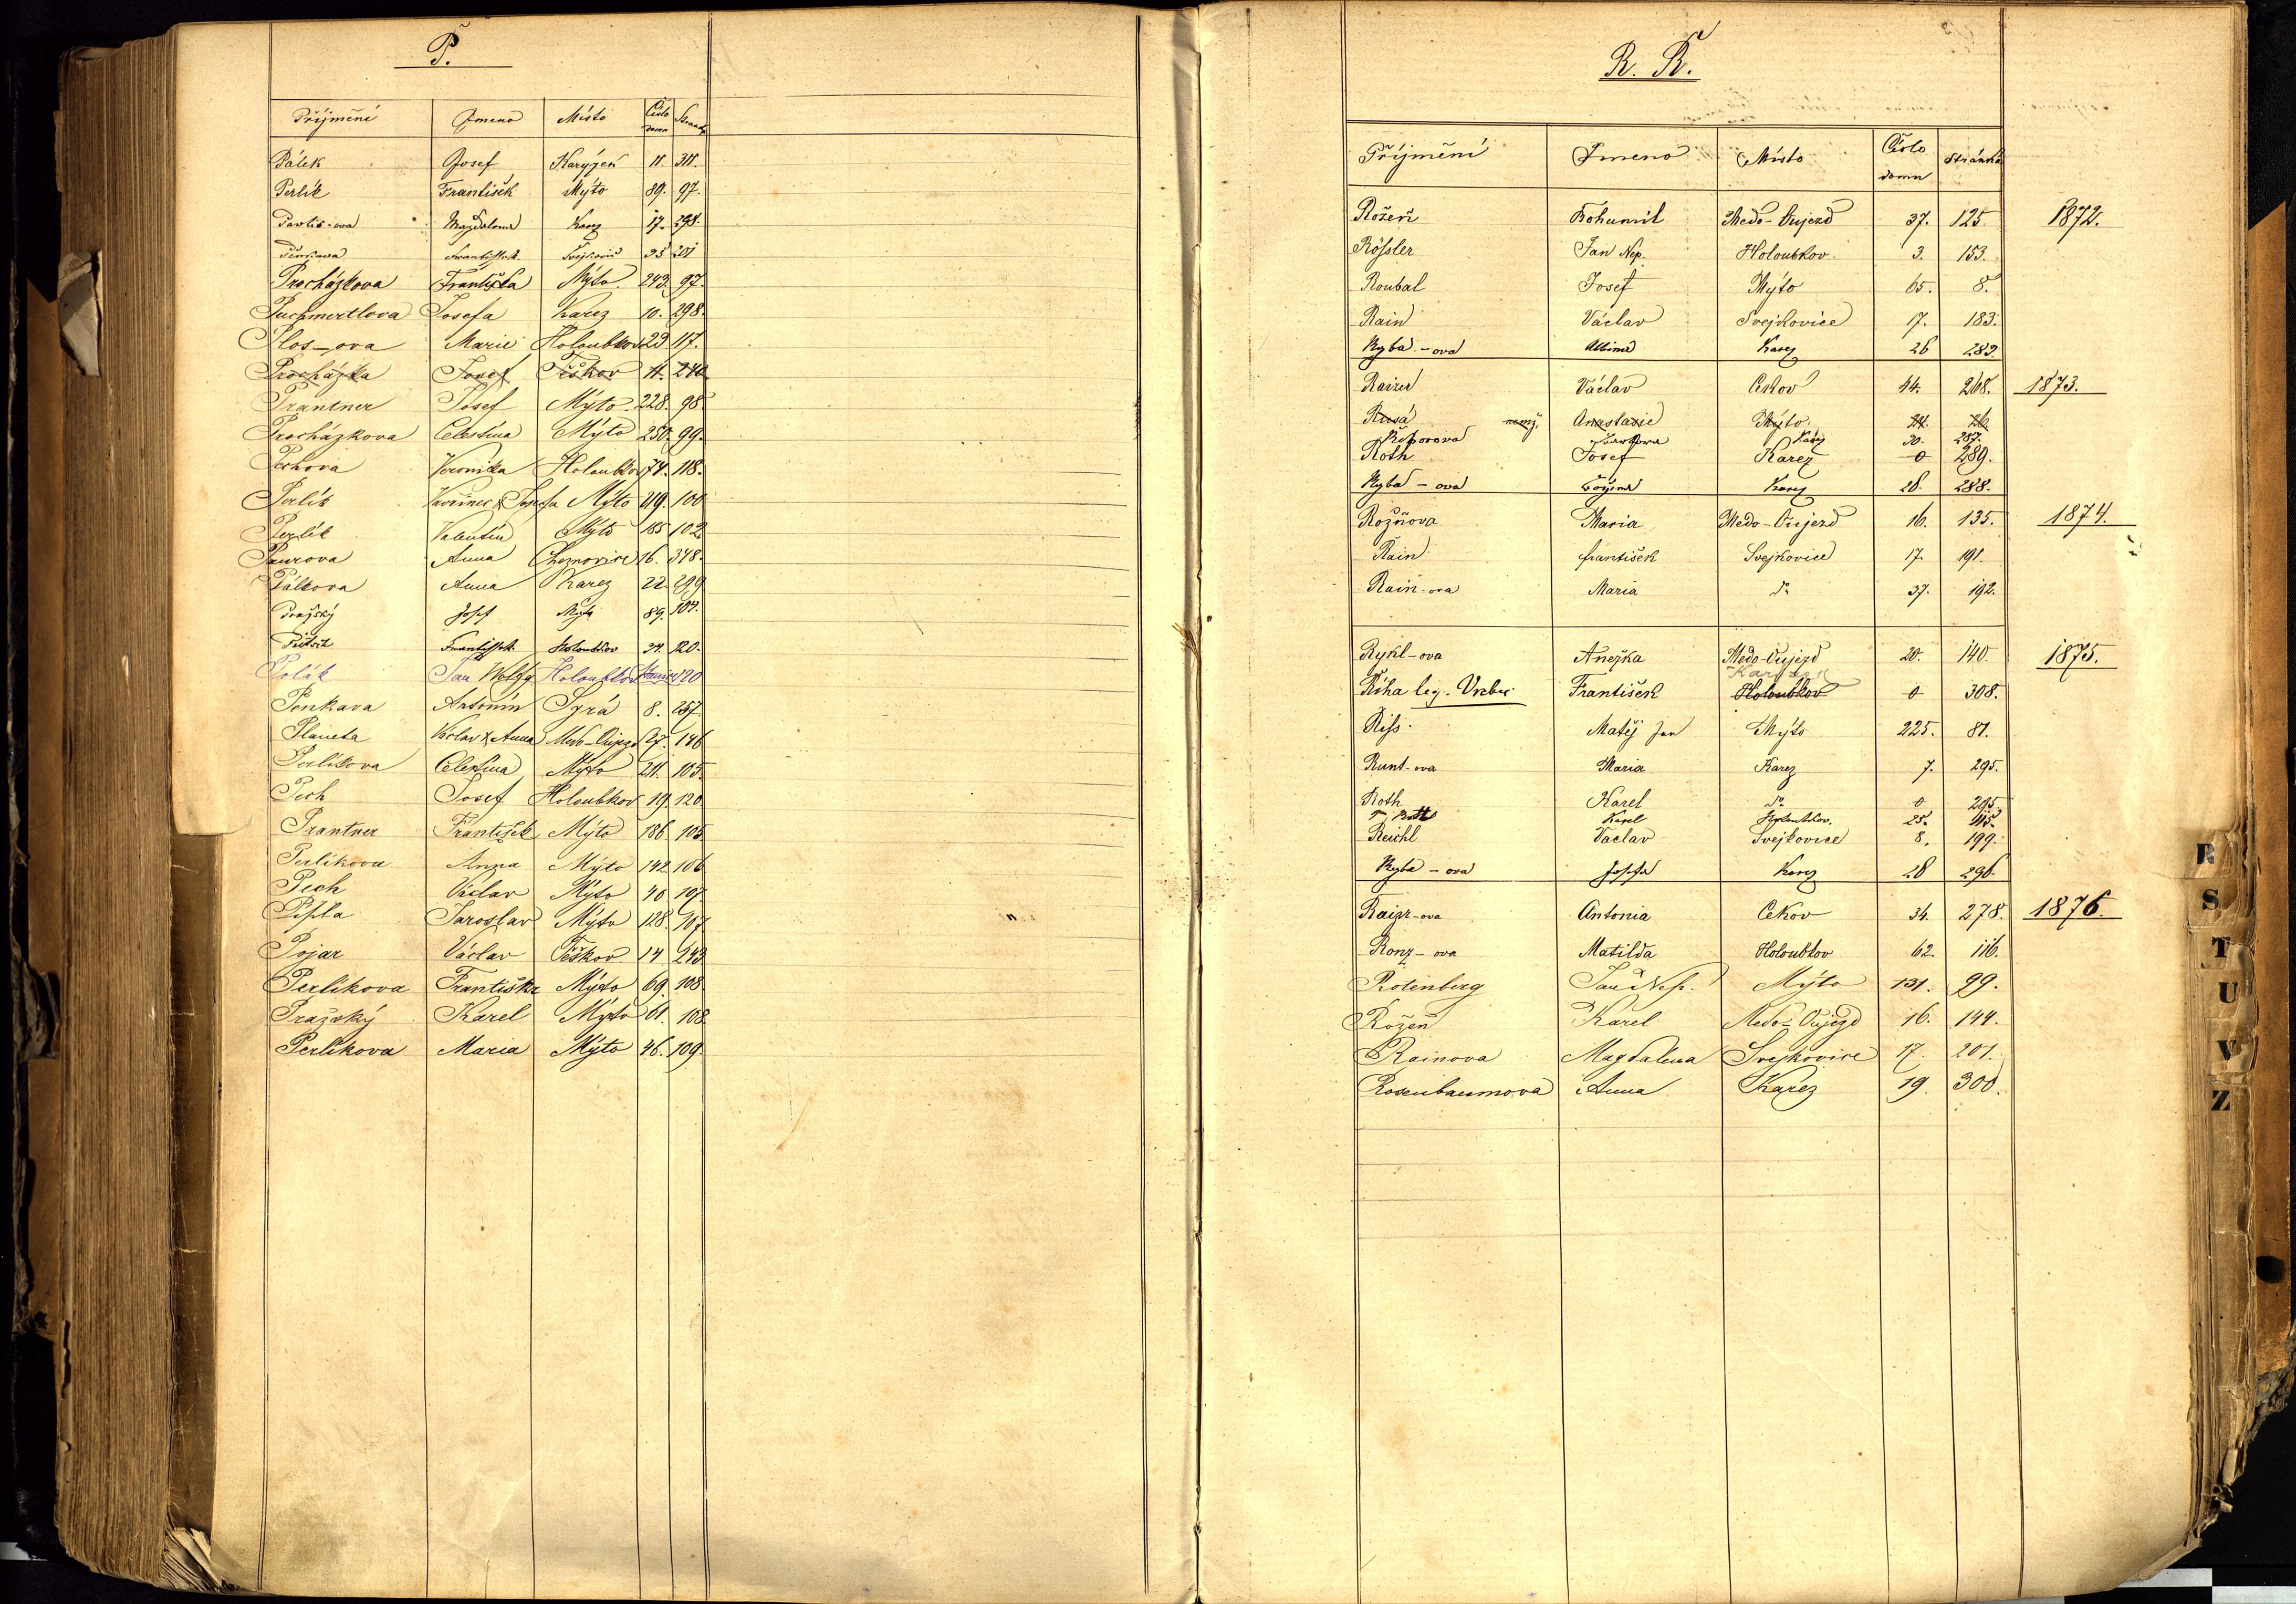 P.
Příjmění Jmeno Místo Číslo domu Stránka
Pálek Josef Karýzek 11. 311.
Perlík František Mýto 89. 97.
-ova Magdalena Karez 17. 298.
František Svejkovic 35 201
Procházkova Františka Mýto 243. 97.
Puchmertlova Josefa Karez 10. 298.
Plos-ova Marie Holoubkov 23 117.
Procházka Josef Těškov 11. 240
Prantner Josef Mýto 228. 98.
Procházkova Celestina Mýto 250. 99.
Pechova Veronika Holoubkov 74. 118.
Perlík Vavřinec & Josefa Mýto 219. 100
Perlík Valentin Mýto 185 102
Paurova Anna 16. 378.
Pálkova Anna Karez 22. 299
Pražský Josef Mýto 89. 104.
František Holoubkov 34. 120.
Polák Jan Wolfg Holoubkov 120
Penkava Antonín Syrá 8. 257.
Planeta Václav & Anna Medo-Oujezd 27. 146
Perlíkova Celestina Mýto 211. 105.
Pech Josef Holoubkov 19. 120
Prantner František Mýto 186. 105.
Perlíkova Anna Mýto 142 106
Pech Václav Mýto 40 107.
Jaroslav Mýto 128. 107
Pojar Václav Těškov 14 243
Perlíkova Františka Mýto 69. 108.
Pražský Karel Mýto 61. 108.
Perlíkova Maria Mýto 46. 109.
R. Ř.
Příjmění Jmeno Místo Číslo domu stránka
Rožeň Bohumil Medo-Oujezd 37. 125 1872.
Rössler Jan Nep. Holoubkov 3. 153.
Roubal Josef Mýto 65. 8.
Rain Václav Svejkovice 17. 183.
Ryba-ova Albina Karez 26 283.
Raizer Václav Cekov 44. 268. 1873.
Anastazie Mýto 24. 26.
Karez 30. 287.
Roth Josef Karez 0 289.
Ryba-ova Karez 28. 288.
Rožňova Maria Medo-Oujezd 16. 135. 1874.
Rain František Svejkovice 17. 191.
Rain-ova Maria dº 37. 192.
Rykl-ova Anežka Medo-Oujezd 20. 140. 1875.
Karýzek
Říha leg. František Holoubkov 0 308.
Riss Matěj Jan Mýto 225. 81.
Runt-ova Maria Karez 7. 295.
Roth Karel dº 0 295.
Roth Karel Holoubkov. 25. 115.
Reichl Václav Svejkovice 8. 199.
Ryba-ova Josefa Karez 28 296
Raizr-ova Antonia Cekov 34. 278. 1876.
Ronz-ova Matilda Holoubkov 62 116.
Rotenberg Jan Nep. Mýto 131. 99.
Rožeň Karel Medo-Oujezd 16. 144.
Rainova Magdalena Svejkovice 17. 201.
Rosenbaumova Anna Karez 19. 300.
R
S
T
U
V
Z